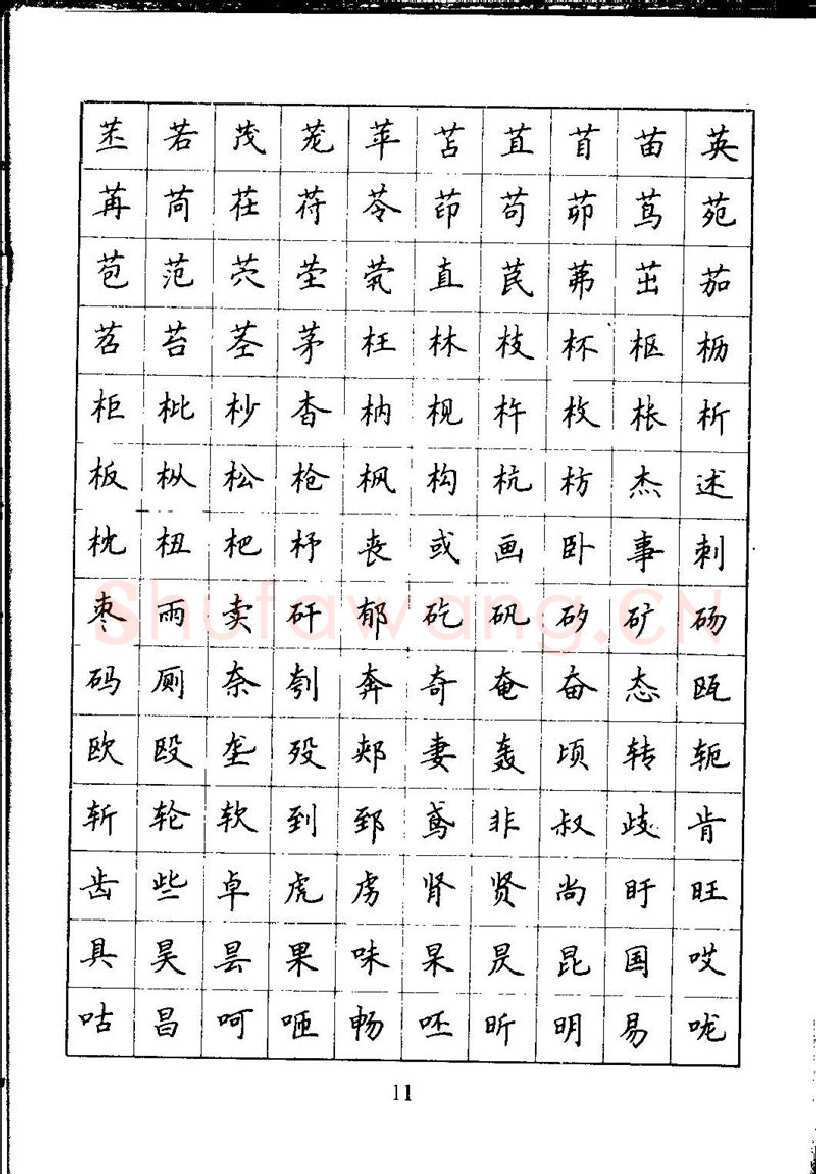 苤若茂茏苹苫苴苜苗英
苒苘茌苻苓茚苟茆茑苑
苞范茓茔茕直苠茀茁茄
苕苔茎茅枉林枝杯枢枥
柜枇杪杳枘枧杵枚枨析
板枞松枪枫构杭枋杰述
枕杻杷杼丧或画卧事刺
枣雨卖矸郁矻矾矽矿砀
Shufawang.CN
码厕奈刳奔奇奄奋态瓯
欧殴垄殁郏妻轰顷转轭
斩轮软到郅鸢非叔歧肯
齿些卓虎虏肾贤尚盱旺
具昊昙果味杲昃昆国哎
咕昌呵咂畅呸昕明易咙
11